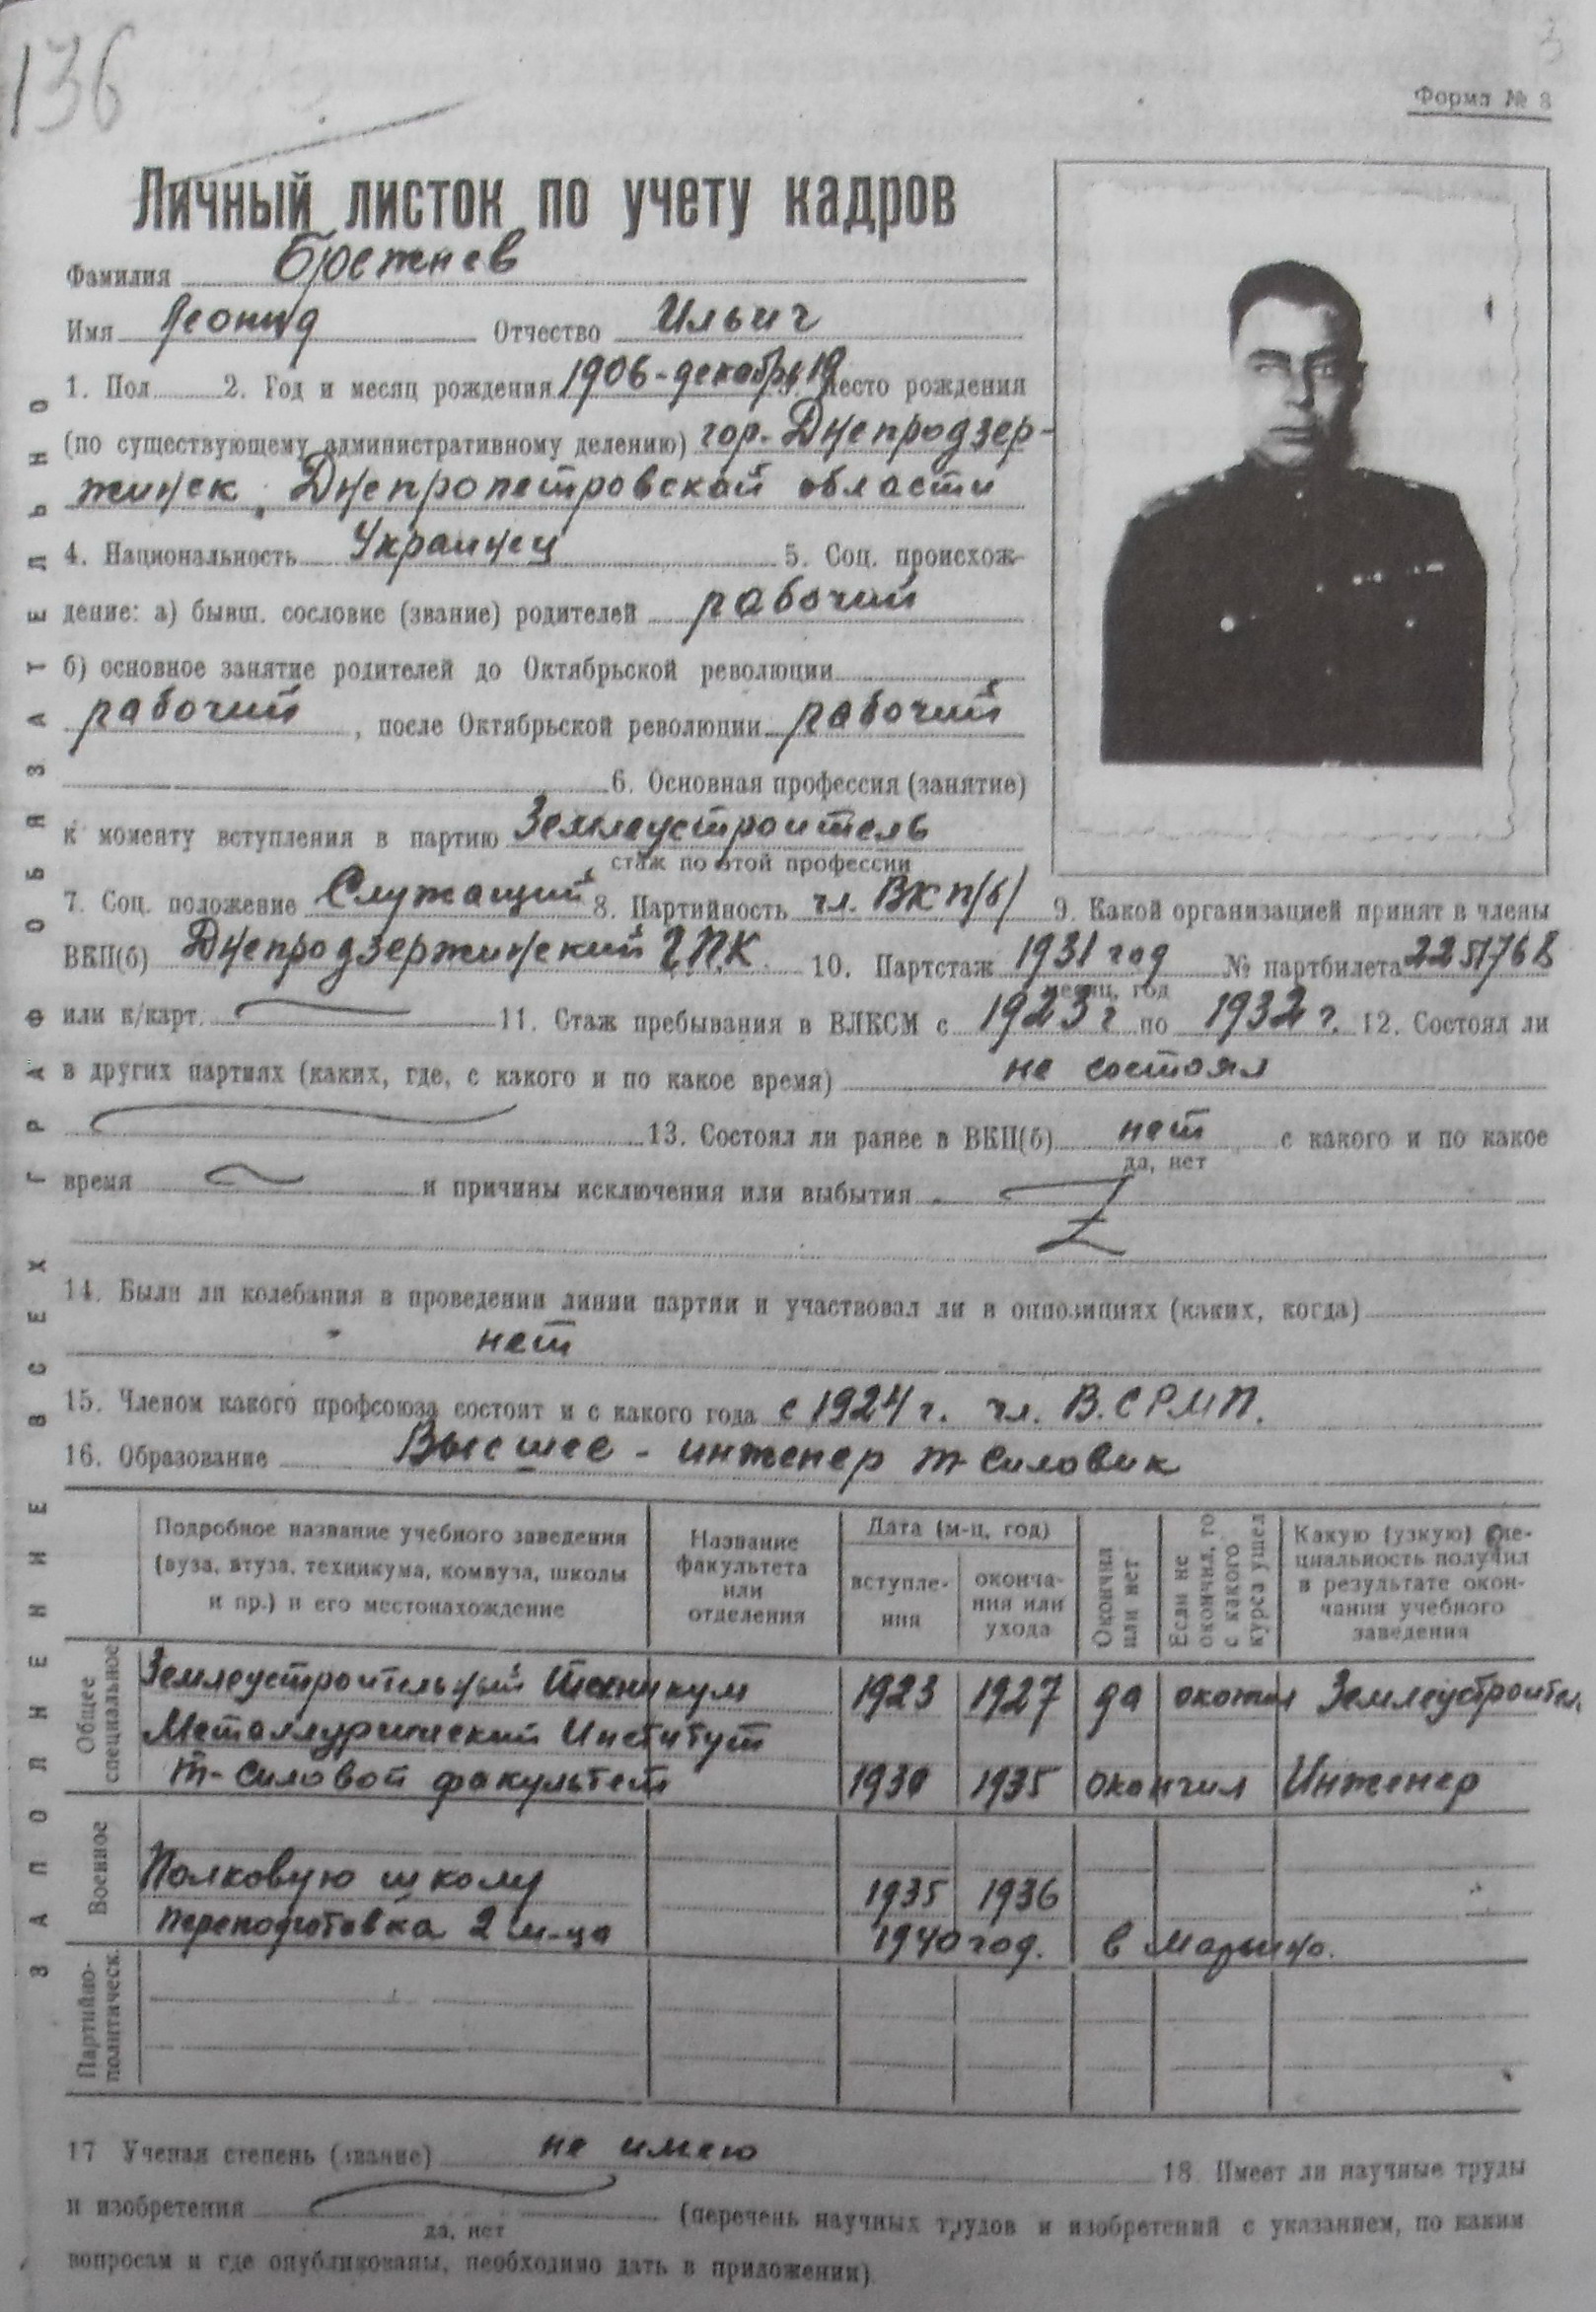 136
3
Форма № 8
Личный листок по учету кадров
Фамилия Брежнев
Имя Леонид Отчество Ильич
1. Пол 2. Год и месяц рождения 1906 - декабрь 19 3. Место рождения
(по существующему административному делению) гор. Днепродзер-
жинск, Днепропетровской области
4. Национальность Украинец 5. Соц. происхож-
дение: а) бывш. сословие (звание) родителей рабочий
б) основное занятие родителей до Октябрьской революции
рабочий, после Октябрьской революции рабочий
6. Основная профессия (занятие)
к моменту вступления в партию Землеустроитель
стаж по этой профессии
7. Соц. положение Служащий 8. Партийность чл. ВКП(б) 9. Какой организацией принят в члены
ВКП(б) Днепродзержинский Г.П.К. 10. Партстаж 1931 год № партбилета 2251768
месяц, год
или к/карт. 11. Стаж пребывания в ВЛКСМ с 1923 г по 1932 г. 12. Состоял ли
в других партиях (каких, где, с какого и по какое время) не состоял
13. Состоял ли ранее в ВКП(б) нет с какого и по какое
да, нет
время и причины исключения или выбытия
14. Были ли колебания в проведении линии партии и участвовал ли в оппозициях (каких, когда)
нет
15. Членом какого профсоюза состоит и с какого года с 1924 г. чл. В.СРМП.
16. Образование Высшее - инженер т-силовик
Подробное название учебного заведения
(вуза, втуза, техникума, комвуза, школы
и пр.) и его местонахождение
Название
факультета
или
отделения
Дата (м-ц, год)
вступле-
ния
оконча-
ния или
ухода
Окончил
или нет
Если не
окончил, то
с какого
курса ушел
Какую (узкую) спе-
циальность получил
в результате окон-
чания учебного
заведения
Общее
специальное
Землеустроительный Техникум 1923 1927 да окончил Землеустроител.
Металлургический Институт
т-силовой факультет 1930 1935 окончил Инженер
Военное
Полковую школу 1935 1936
Переподготовка 2 м-ца 1940 год. в Марьино.
Партийно-
политическ.
17 Ученая степень (звание) не имею 18. Имеет ли научные труды
и изобретения (перечень научных трудов и изобретений с указанием, по каким
да, нет
вопросам и где опубликованы, необходимо дать в приложении)
ЗАПОЛНЕНИЕ ВСЕХ ГРАФ ОБЯЗАТЕЛЬНО